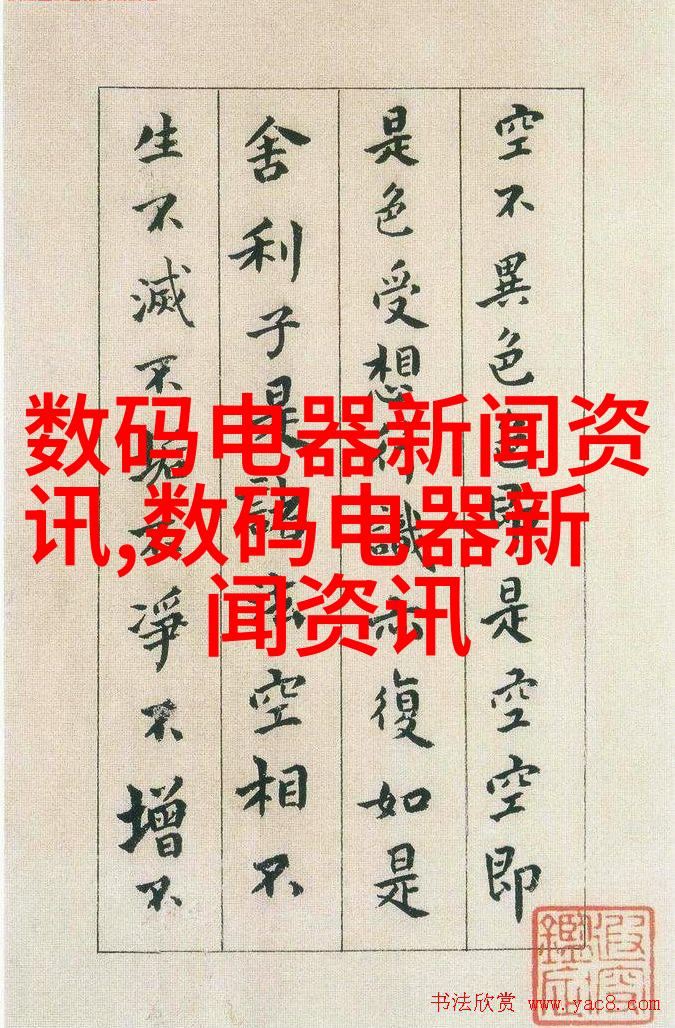 空不異色色即是空空即
是色受想行識亦復如是
舍利子是諸法空相不
生不滅不垢不淨不增不
数码电器新闻资
讯,数码电器新
闻资讯
书法欣赏 www.yac8.com